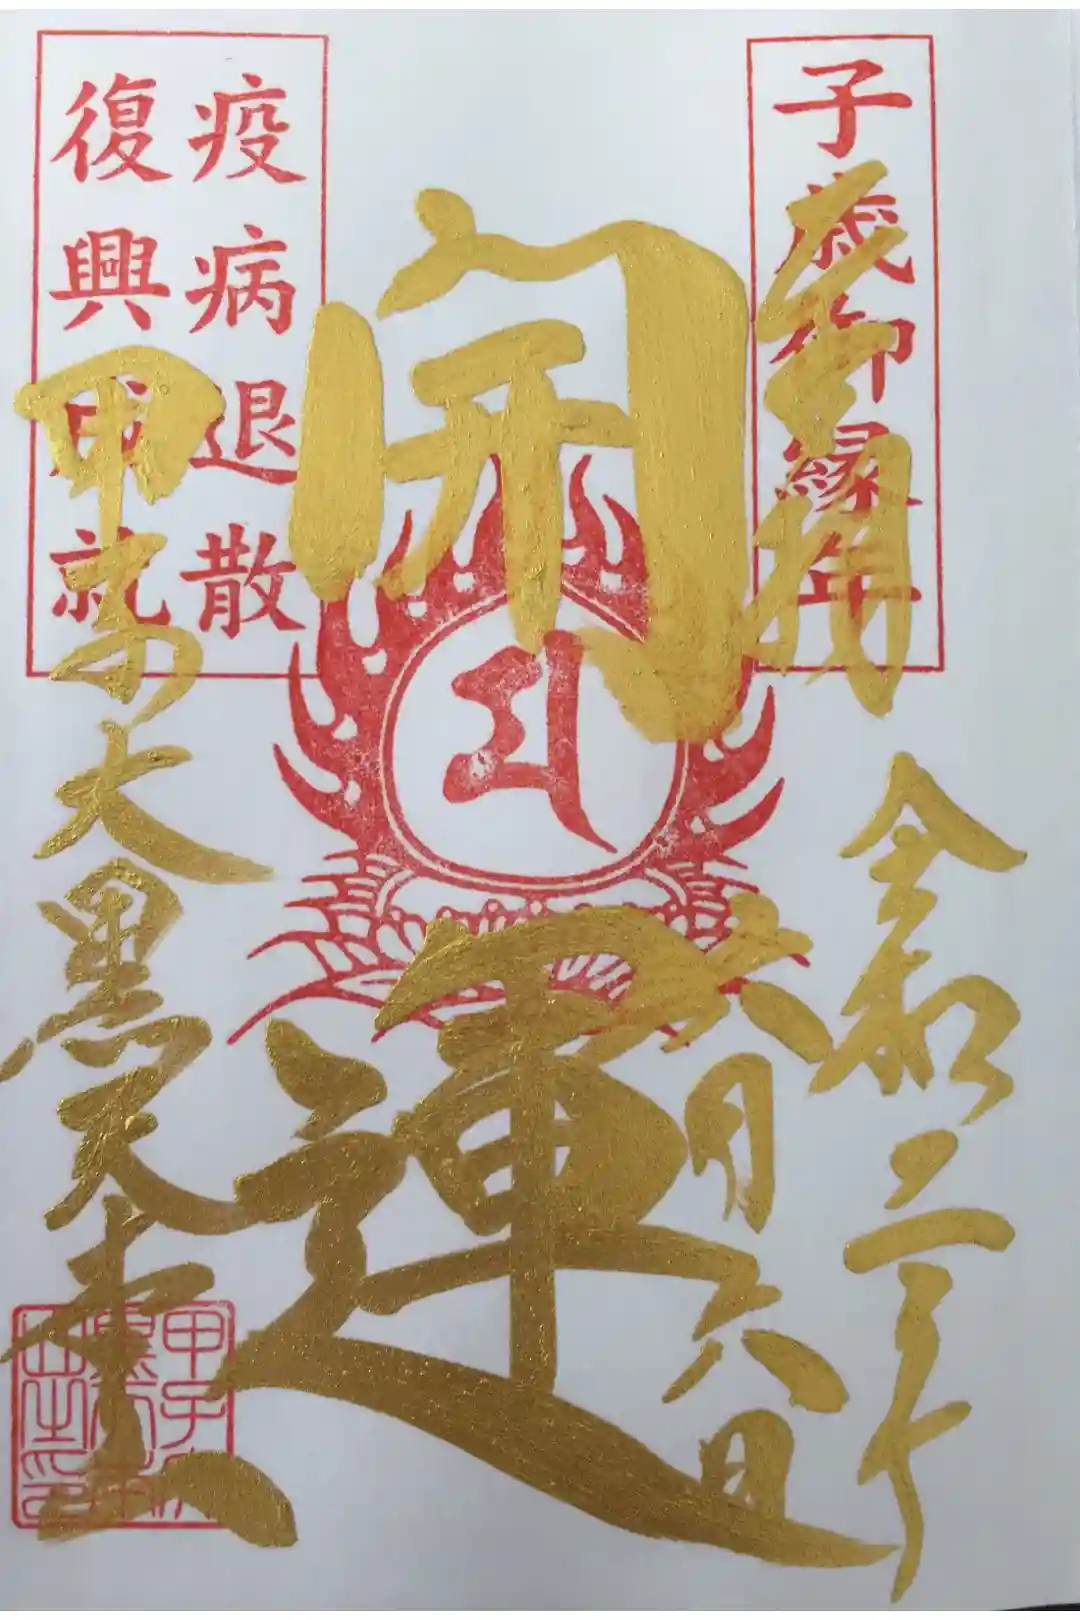 子歳御縁年
奉拝
令和二年
六月六日
開運
疫病退散
復興成就
甲子大黒天本山